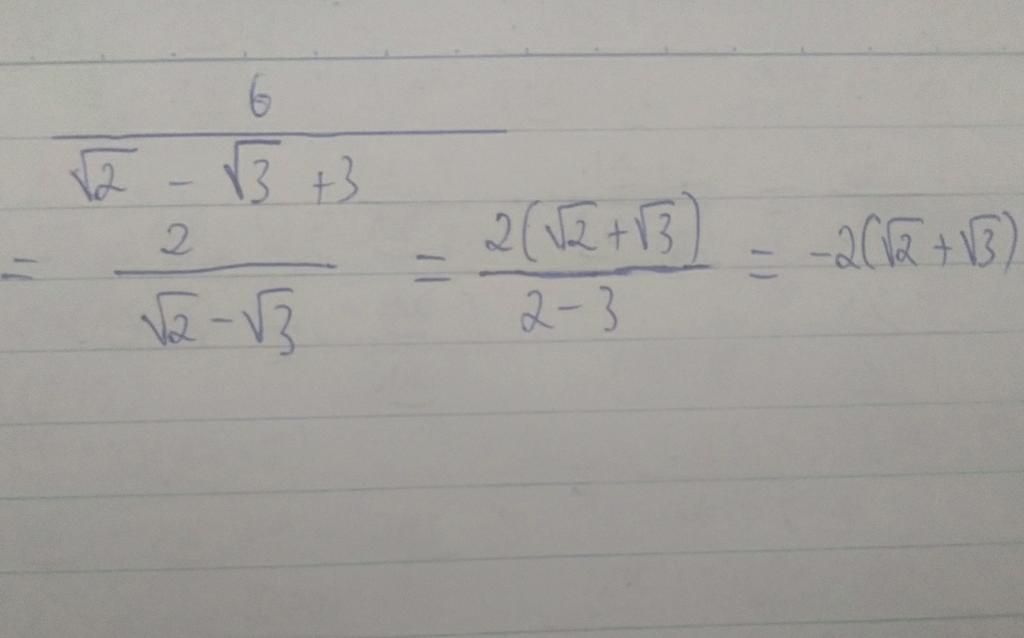 6
√2 - √3 +3
= 2 / √2-√3 = 2(√2+√3) / 2-3 = -2(√2+√3)